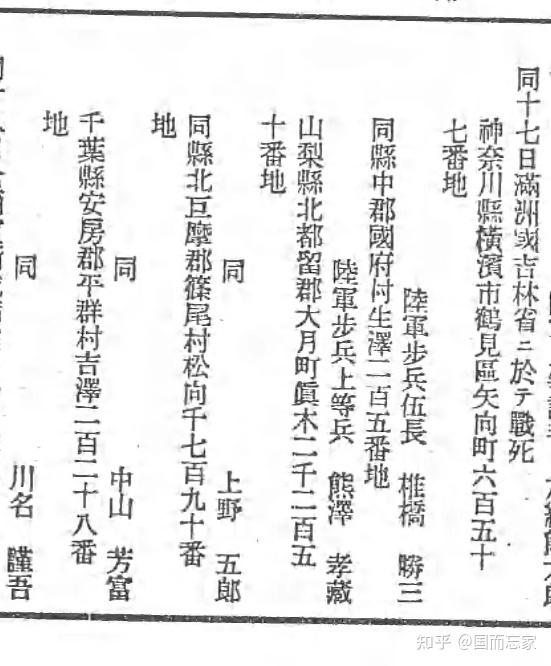 同十七日滿洲國吉林省ニ於テ戰死
神奈川縣橫濱市鶴見區矢向町六百五十
七番地
陸軍步兵伍長 椎橋 勝三
同縣中郡國府村生澤二百五番地
陸軍步兵上等兵 熊澤 孝藏
山梨縣北都留郡大月町眞木二千二百五
十番地
同 上野 五郎
同縣北巨摩郡篠尾村松向千七百九十番
地
同 中山 芳富
千葉縣安房郡平群村吉澤二百二十八番
地
同 川名 謹吾
知乎 @国而忘家